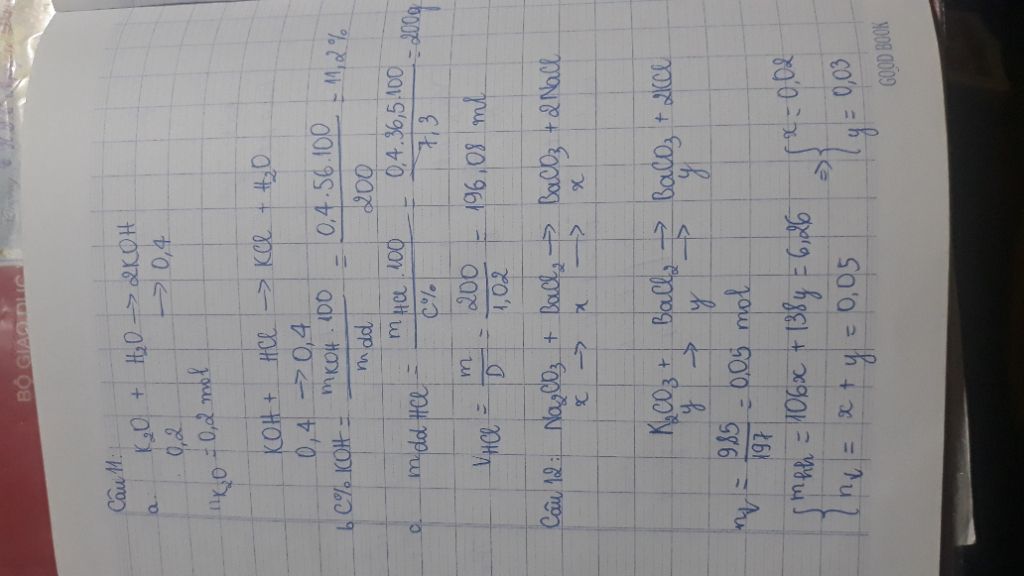 BỘ GIÁO DỤC
Câu 11:
a. K2O + H2O → 2KOH
0,2 → 0,4
nK2O = 0,2 mol
KOH + HCl → KCl + H2O
0,4 → 0,4
b C% KOH = mKOH . 100 / mdd = 0,4 . 56 . 100 / 200 = 11,2%
c mdd HCl = mHCl . 100 / C% = 0,4 . 36,5 . 100 / 7,3 = 200g
VHCl = m / D = 200 / 1,02 = 196,08 ml
Câu 12: Na2CO3 + BaCl2 → BaCO3 + 2NaCl
x → x → x
K2CO3 + BaCl2 → BaCO3 + 2KCl
y → y → y
n↓ = 9,85 / 197 = 0,05 mol
{ mhh = 106x + 138y = 6,26 => { x = 0,02
{ n↓ = x + y = 0,05 { y = 0,03
GOOD BOOK